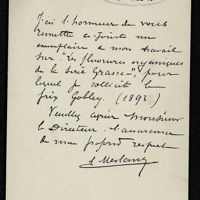 J'ai l'honneur de vous
remettre ci-joint un
exemplaire de mon travail
sur "Les fluorures organiques
de la série Grasse", pour
lequel je sollicite le
prix Gobley. (1893)
Veuillez agréer Monsieur
le Directeur l'assurance
de mon profond respect